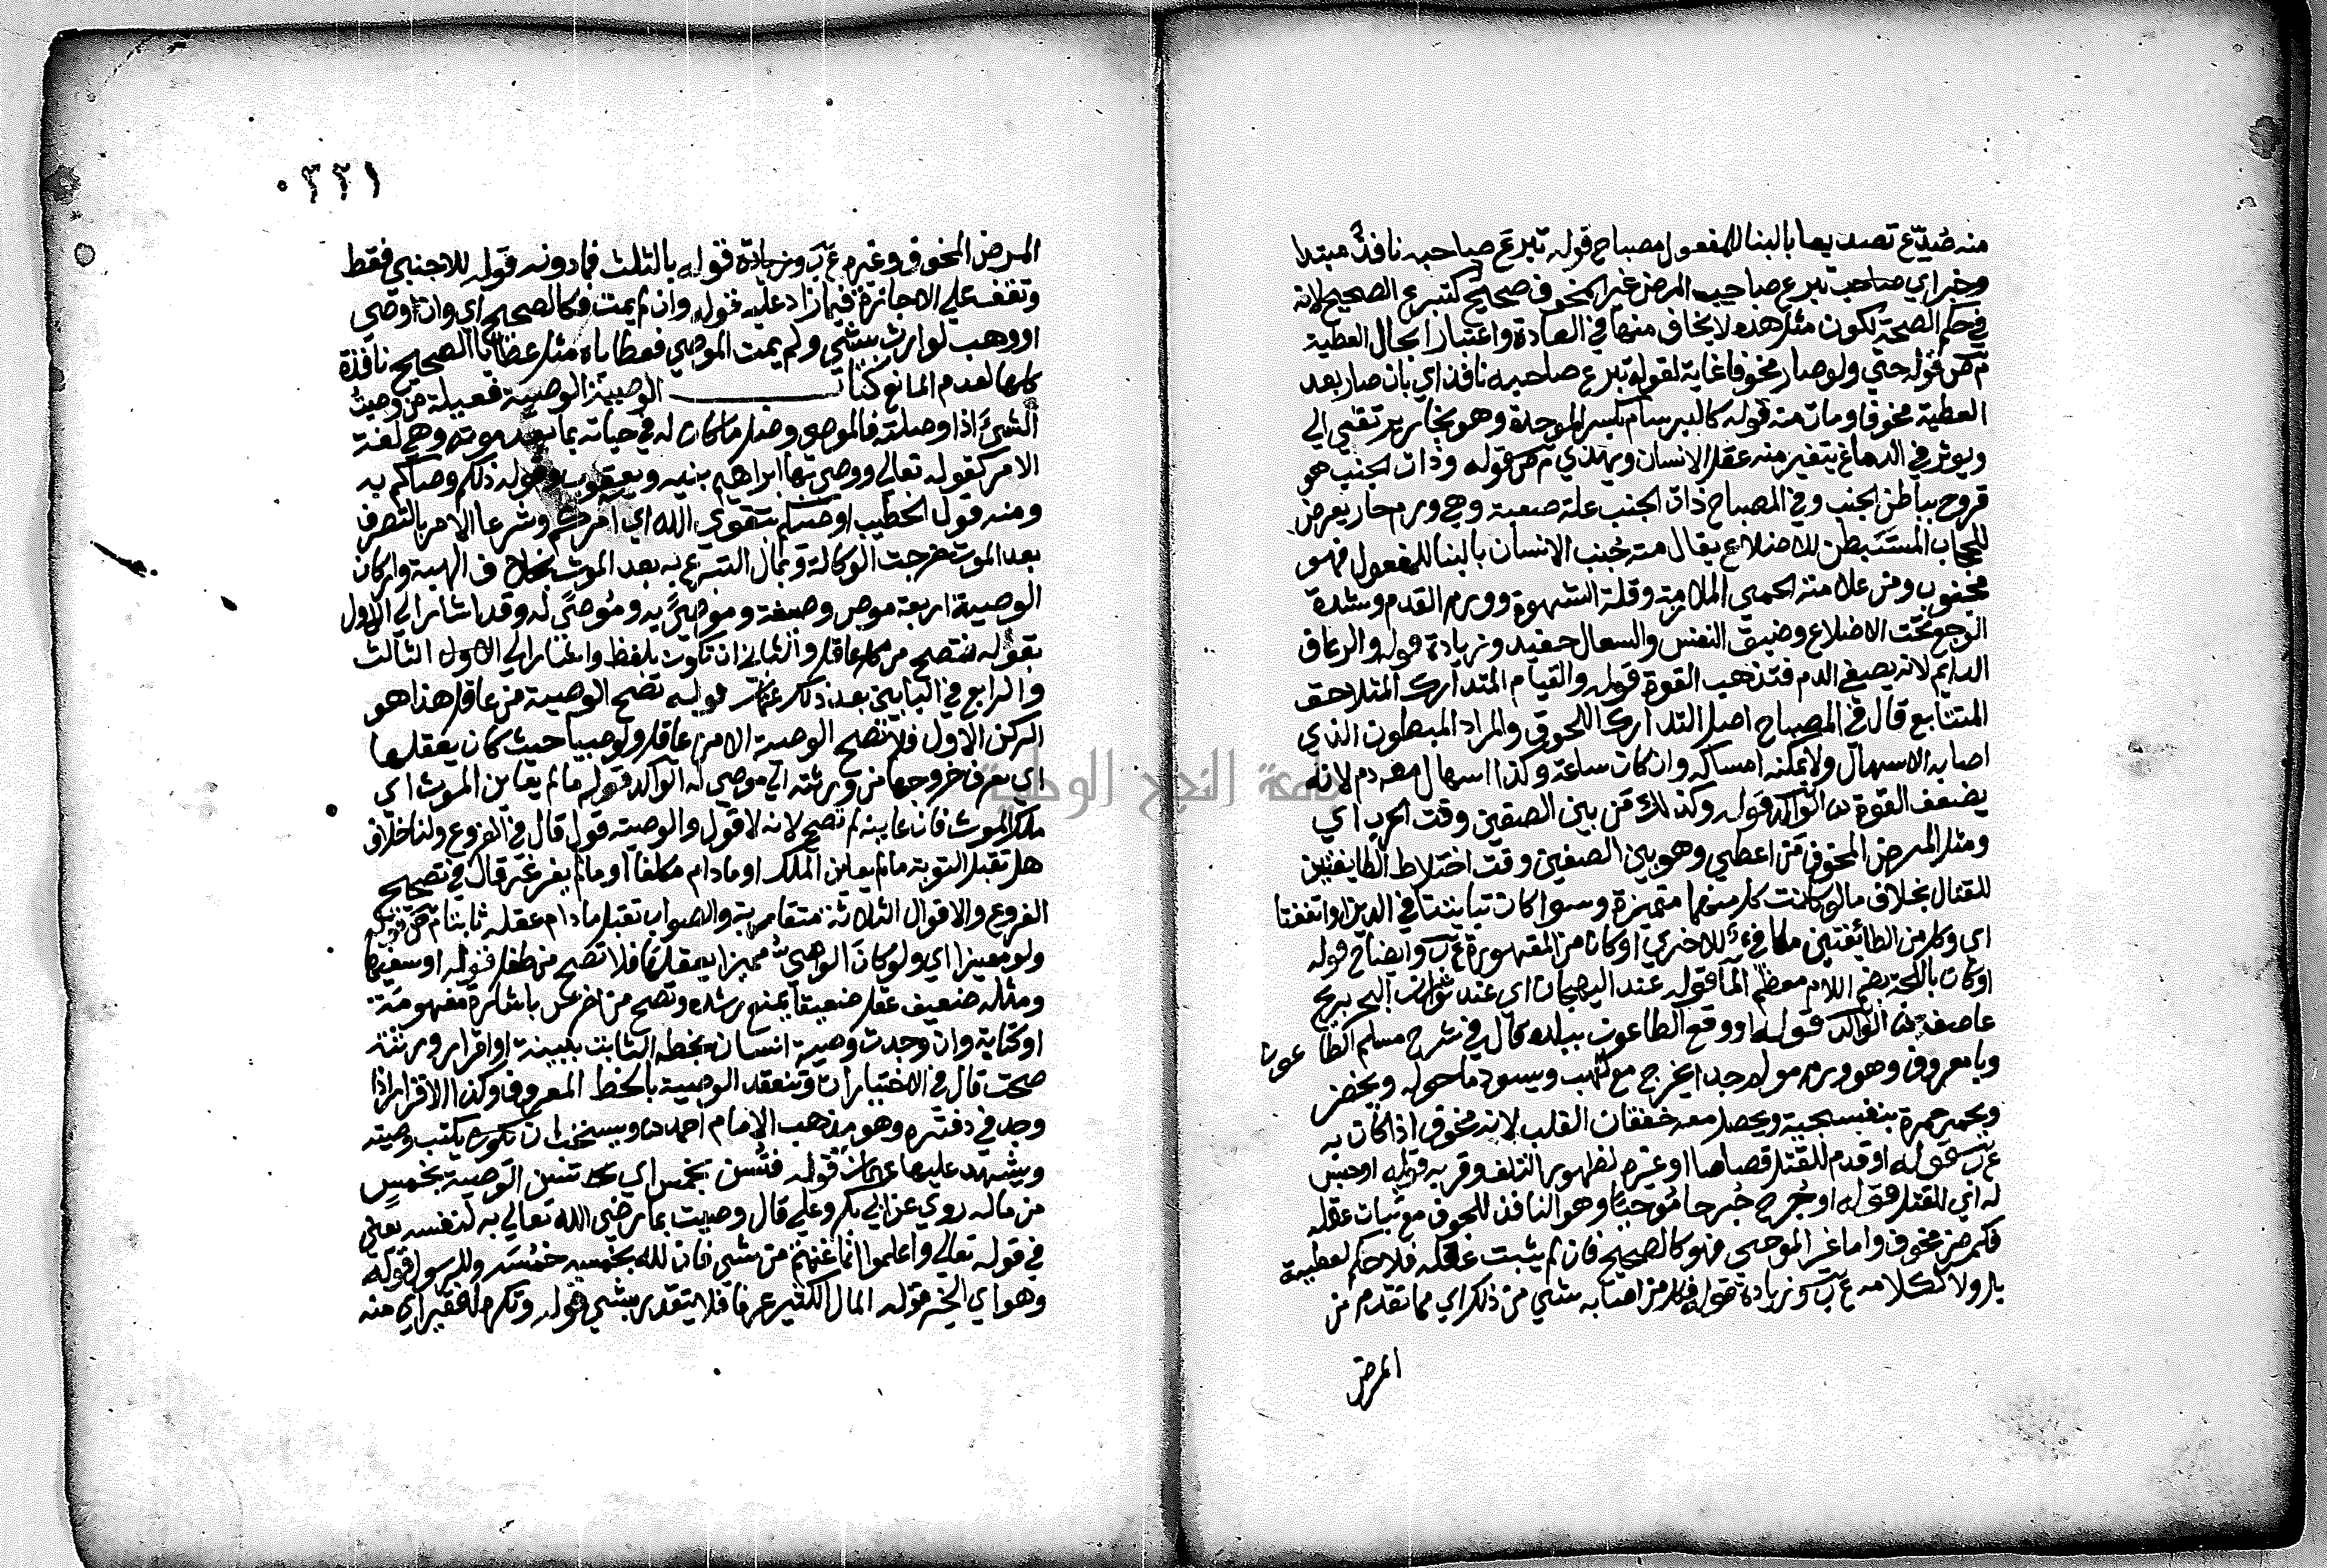 منه صُدّع تصديعا بالبنا للمفعول مصباح قوله تبرع صاحبه نافذٌ مبتدا
وخبر اي صاحب تبرع صاحب المرض غير المخوف صحيح كتبرع الصحيح لانه
في حكم الصحة لكون مثل هذه لا يخاف منها في العادة واعتبارا بحال العطية
م ص قوله حتي ولو صار مخوفا غاية لقوله تبرع صاحبه نافذ اي بان صار بعد
العطية مخوفا ومات منه قوله كالبرسام بكسر الموحدة وهو بخار يرتقي الي
ويوثر في الدماغ يتغير منه عقل الانسان ويهذي م ص قوله وذات الجنب هو
قروح بباطن الجنب وفي المصباح ذات الجنب علة صعبة وهي ورم حار يعرض
للحجاب المستبطن للاضلاع يقال منه جنب الانسان بالبنا للمفعول فهو
مجنوب ومن علامته الحمي الملازمة وقلة الشهوة وورم القدم وشدة
الوجع تحت الاضلاع وضيق النفس والسعال حفيد وزيادة قوله والرعاف
الدايم لانه يصفي الدم فتذهب القوة قوله والقيام المتدارك المتلاحق
المتتابع قال في المصباح اصل التدارك اللحوق والمراد المبطون الذي
اصابه الاسهال ولا يمكنه امساكه وان كان ساعة وكذا اسهال معه دم لانه
يضعف القوة الوالد قوله وكذلك من بين الصفين وقت الحرب اي
ومثل المرض المخوف من اعطي وهو بين الصفين وقت اختلاط الطايفتين
للقتال بخلاف ما لو كانت كل منهما متميزة وسوا كان تباينتا في الدين او اتفقتا
اي وكل من الطائفتين مكافيء للاخري او كان من المقهورة ع ب وايضاح قوله
او كان باللجة بضم اللام معظم الما قوله عند الهيجان اي عند ثوران البحر بريح
عاصف الوالد قوله او وقع الطاعون ببلده قال في شرح مسلم الطاعون
وبا معروف وهو ورم مولم جدا يخرج مع لهب ويسود ما حوله ويخضر
ويحمر حمرة بنفسجية ويحصل معه خفقان القلب لانه مخوف اذا كان به
ع ب قوله او قدم للقتل قصاصا او غيره لظهور التلف وقربه قوله او حبس
له اي للقتل قوله او جُرح جُرحا مُوحيًا وهو النافذ للجوف مع ثبات عقله
فكمرض مخوف واما غير الموحي فهو كالصحيح فان لم يثبت عقله فلا حكم لعطيته
بل ولا لكلامه ع ب وزيادة قوله فكل من اصابه شئي من ذلك اي مما تقدم من
المرض
٠٢٢١
المرض المخوف وغيره ع ب وزيادة قوله بالثلث فما دونه قوله للاجنبي فقط
وتقف علي الاجازة فيما زاد عليه قوله وان لم يمت فكالصحيح اي وان اوصي
او وهب لوارث بشئي ولم يمت الموصي فعطاياه مثل عطايا الصحيح نافذة
كلها لعدم المانع كتاب الوصية الوصية فعيلة من وصيت
الشئ اذا وصلته فالموصي وصل ما كان له في حياته بما بعد موته وهي لغة
الامر كقوله تعالي ووصي بها ابراهيم بنيه ويعقوب وقوله ذلكم وصاكم به
ومنه قول الخطيب اوصيكم بتقوي الله اي آمركم وشرعا الامر بالتصرف
بعد الموت فخرجت الوكالة وبمال التبرع به بعد الموت بخلاف الهبة واركان
الوصية اربعة موص وصيغة وموصيً به وموصيً له وقد اشار الي الاول
بقوله فتصح من كل عاقل والثاني ان تكون بلفظ واشار الي الاول الثالث
والرابع في البابين بعد ذلك قوله تصح الوصية من عاقل هذا هو
الركن الاول فلا تصح الوصية الا من عاقل ولو صبيا حيث كان يعقلها
اي يعرف خروجها من ورثته الي موصي له الوالد قوله ما لم يعاين الموت اي
ملك الموت فان عاينه لم تصح لانه لا قول والوصية قول قال في الفروع ولنا خلاف
هل تقبل التوبة ما لم يعاين الملك او ما دام مكلفا او ما لم يغرغر قال في تصحيح
الفروع والاقوال الثلاثة متقاربة والصواب تقبل ما دام عقله ثابتا م ص قوله
ولو مميزا اي ولو كان الواهب مميزا يعقلها فلا تصح من طفل قوله او سفيها
ومثله ضعيف عقل ضعيفا يمنع رشده وتصح من اخرس باشارة مفهومة
او كتابة وان وجدت وصية انسان بخطه الثابت ببينة او اقرار ورثته
صحت قال في الاختيارات وتنعقد الوصية بالخط المعروف وكذا الاقرار اذا
وجد في دفتره وهو مذهب الامام احمد ويستحب ان يكتب وصيته
ويشهد عليها قوله فتسن بخمس اي تسن الوصية بخمس
من ماله روي عن ابي بكر وعلي قال وصيت بما رضي الله تعالي به لنفسه يعني
في قوله تعالي واعلموا انما غنمتم من شي فان لله خمسه وللرسول قوله
وهو اي الخير قوله المال الكثير عرفا فلا يتقدر بشي قوله وتكره لفقير اي منه